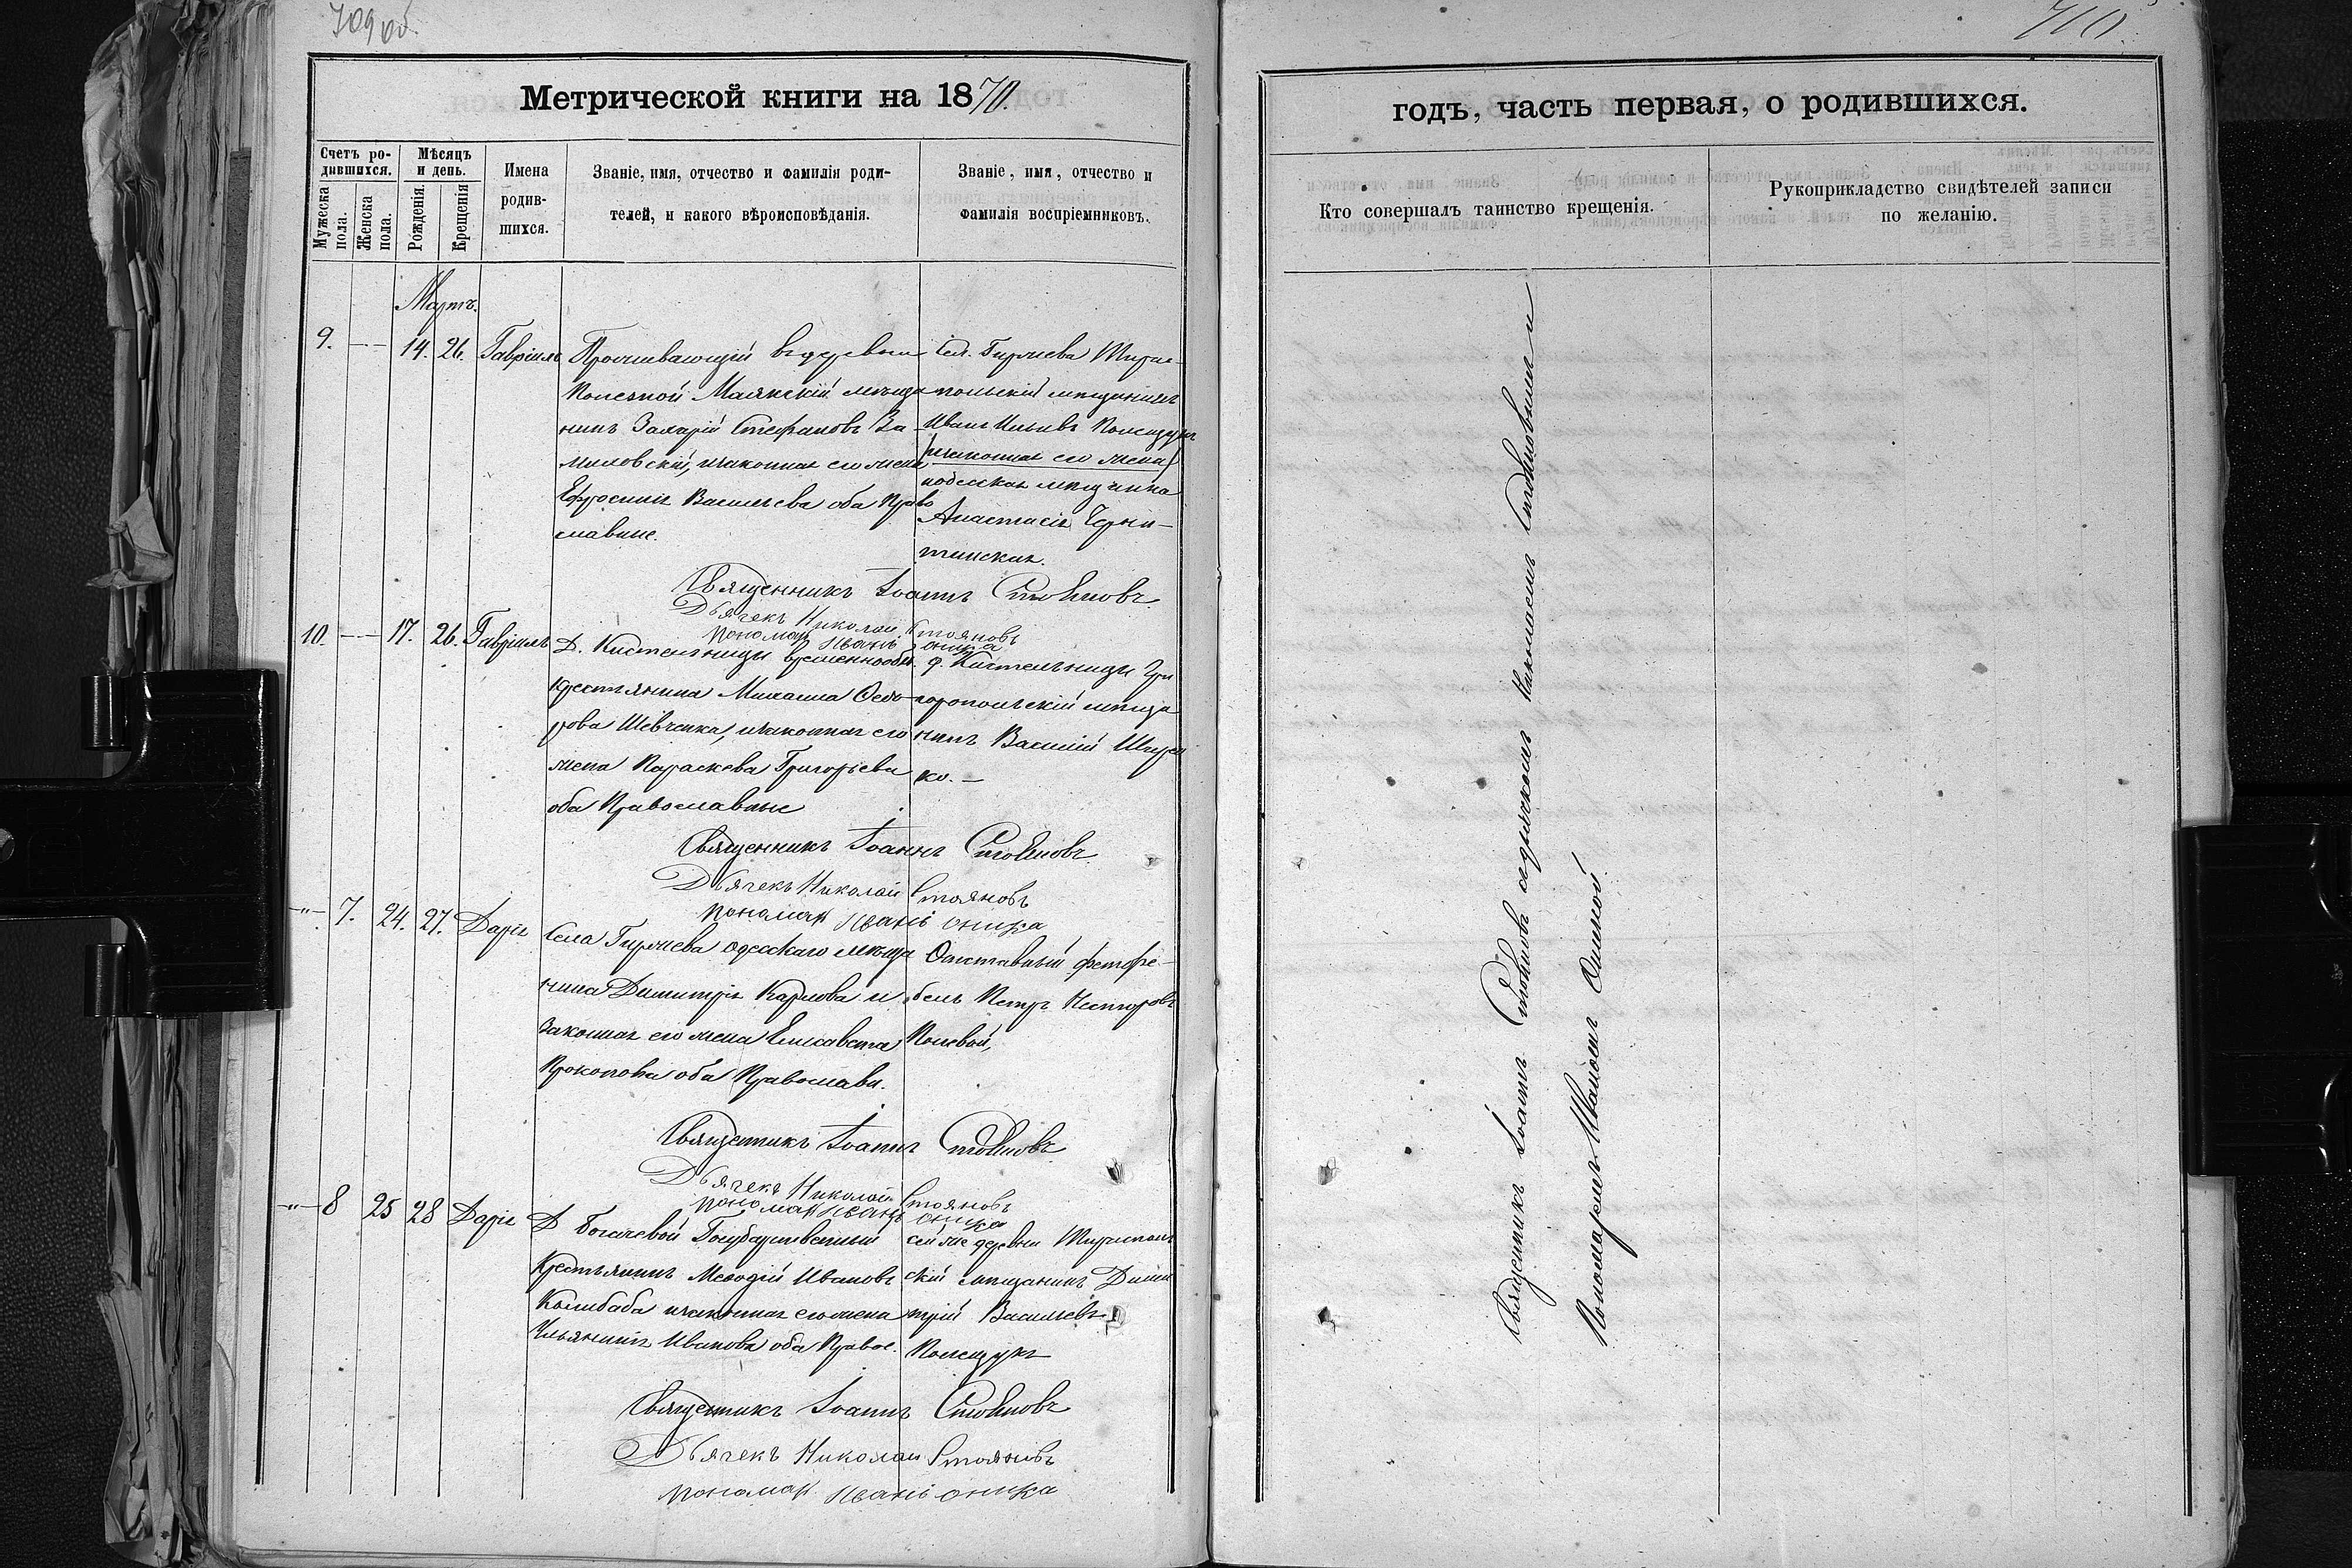 709 об.
Метрической книги на 1870.
Счетъ ро-
дившихся.
Мѣсяцъ
и день.
Мужеска
пола.
Женска
пола.
Рожденія.
Крещенія
Имена
родив-
шихся.
Званіе, имя, отчество и фамилія роди-
телей, и какого вѣроисповѣданія.
Званіе, имя, отчество и
фамилія воспріемниковъ.
Мартъ.
9. — 14. 26. Гавріилъ
Проживающій въ деревни
Маякскій мѣща
нинъ Захарій Стефановъ За
миловскій, и законная его жена
Ефросинія Васильева оба Право
славные.
Сел. Гирлева Тирас-
польскій мѣщанинъ
Иванъ Ильинъ Полещукъ
и законная его жена
одесская мѣщанка
Анастасія Черня-
тинская.
Священникъ Іоаннъ Стояновъ
Дьячекъ Николай Стояновъ
пономар Иванъ Оница
10. — 17. 26. Гавріилъ
Д. Кистельницы временнообяз.
крестьянина Михаила Ѳедо-
рова Шевченка, и законная его
жена Параскева Григорьева
оба Православные
д. Кистельницы Гри
горопольскій мѣща
нинъ Василій
ко. —
Священникъ Іоаннъ Стояновъ
Дьячекъ Николай Стояновъ
пономар Иванъ Оница
-"- 7. 24. 27. Дарія
Села Гирлева одесскаго мѣща
нина Димитрія Карпова и
законная его жена Елисавета
Прокопова оба Православн.
Отставный фельдфе-
бель Петръ Несторовъ
Полевой,
Священникъ Іоаннъ Стояновъ
Дьячекъ Николай Стояновъ
пономар Иванъ Оница
-"- 8 25 28 Дарія
Д Богачевой Государственный
Крестьянинъ Меѳодій Ивановъ
Колибаба и законная его жена
Ульянія Иванова оба Правос.
сей же деревни Тирасполь
скій мѣщанинъ Дими
трій Васильевъ
Полещукъ
Священникъ Іоаннъ Стояновъ
Дьячекъ Николай Стояновъ
пономар Иванъ Оница
710
годъ, часть первая, о родившихся.
Кто совершалъ таинство крещенія.
Рукоприкладство свидѣтелей записи
по желанію.
Священникъ Іоаннъ Стояновъ съ дьячкомъ Николаемъ Стояновымъ и
Пономаремъ Иваномъ Оницой